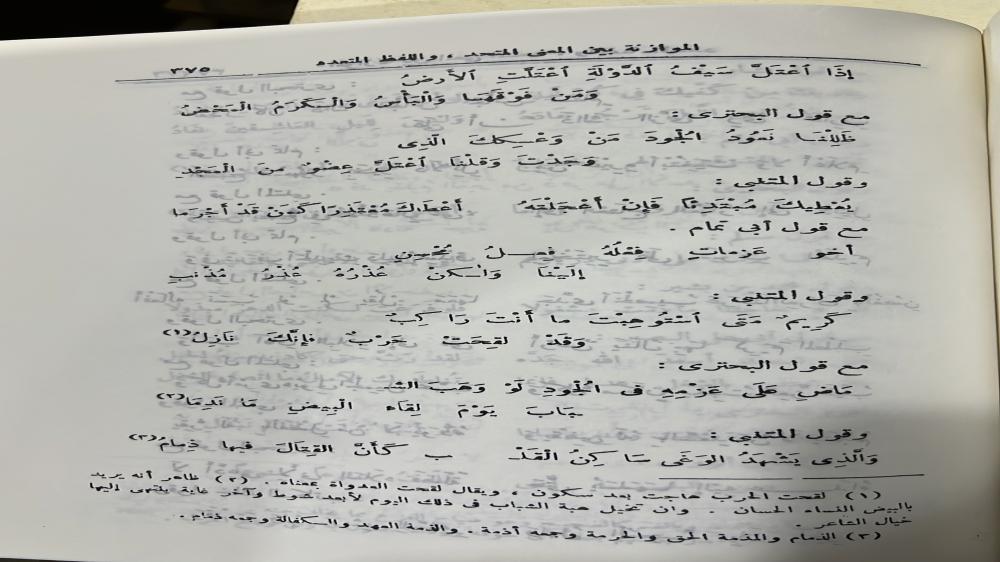 الموازنة بين المعنى المتحد ، واللفظ المتعدد ٣٧٥
إِذَا اعْتَلَّ سَيْفُ الدَّوْلَةِ اعْتَلَّتِ الأَرضُ
وَمَنْ فَوْقَهَا وَالْبَأْسُ وَالْكَرَمُ الْمَحْضُ
مع قول البحترى :
ظَلِلْنَا نَعُودُ الْجُودَ مَنْ وَعْكِكَ الَّذِى
وَجَدْتَ وَقلْنَا اعْتَلَّ عِضْوٌ مِنَ الْمَجْدِ
وقول المتنبى :
يُعْطِيكَ مُبْتَدِئًا فَإِنْ أَعْجَلْتَهُ أَعْطَاكَ مُعْتَذِرًا كَمَنْ قَدْ أَجْرَمَا
مع قول أبى تمام .
أخو عَزماتٍ فِعْلُهُ فِعــلُ مُحْسِنٍ
إِلَيْنَا وَلٰـكنْ عُذْرُهُ عُذْرُ مُذْنِبِ
وقول المتنبى :
كَرِيمٌ مَتَى اسْتُوهِبْتَ ما أَنْتَ رَاكِبٌ
وَقَدْ لَقِحَتْ حَرْبٌ فَإِنَّكَ نَازِلُ (١)
مع قول البحترى :
مَاضٍ عَلَى عَزْمِهِ فى الْجُودِ لَوْ وَهَبَ الشَّـ
ـبَابَ يَوْمَ لِقَاءِ الْبِيضِ مَا نَدِمَا (٢)
وقول المتنبى :
وَالَّذِى يَشْهَدُ الوَغَى سَاكِنُ الْقَلْـ ـبِ كَأَنَّ القِتَالَ فيها ذِمامُ (٣)
(١) لقحت الحرب هاجت بعد سكون ، ويقال لقحت العداوة بمعناه . (٢) ظاهر أنه يريد
بالبيض النساء الحسان . وان تخيل هبة الشباب فى ذلك اليوم لأبعد شوط وآخر غاية ينتهى إليها
خيال الشاعر .
(٣) الذمام والمذمة الحق والحرمة وجمعه أذمة . والذمة العهد والكفالة وجمعه ذمام .